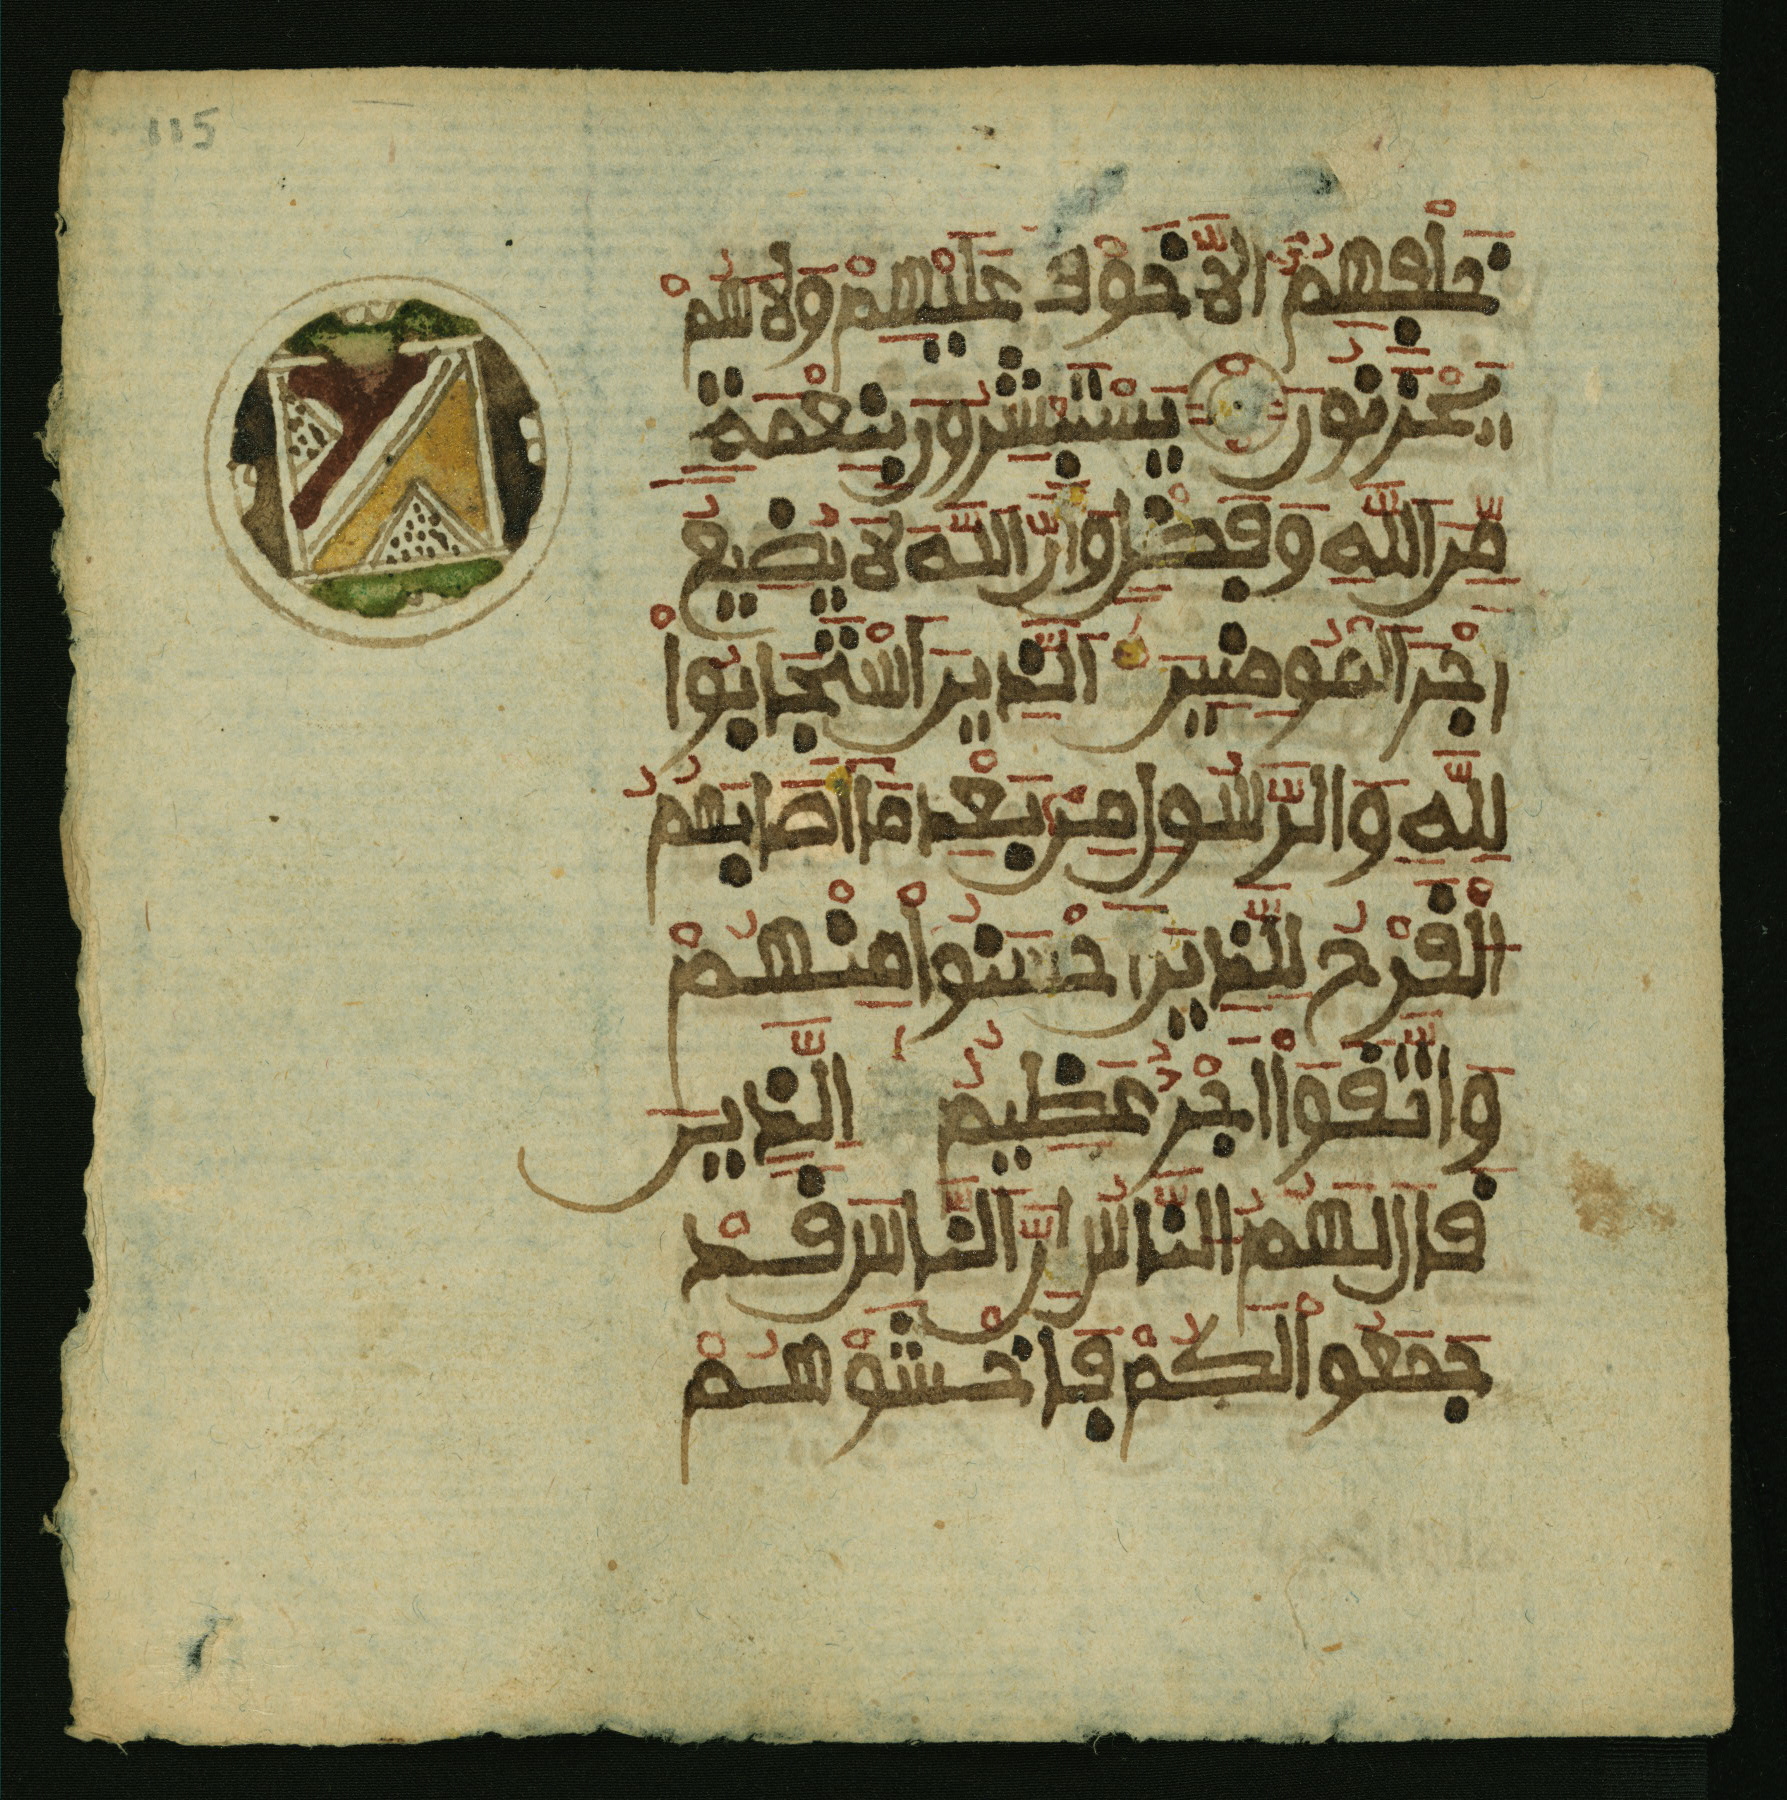 115
خَلْفِهِمُۥٓ أَلَّا خَوْفٌ عَلَيْهِمْ وَلَا هُمْ
يَحْزَنُونَ يَسْتَبْشِرُونَ بِنِعْمَةٍ
مِّنَ ٱللَّهِ وَفَضْلٍ وَأَنَّ ٱللَّهَ لَا يُضِيعُ
أَجْرَ ٱلْمُومِنِينَ ٱلَّذِينَ ٱسْتَجَابُوا
لِلَّهِ وَٱلرَّسُولِ مِنۢ بَعْدِ مَآ أَصَابَهُمُ
ٱلْقَرْحُ لِلَّذِينَ أَحْسَنُوا مِنْهُمْ
وَٱتَّقَوَا اجْرٌ عَظِيمٌ ٱلَّذِينَ
قَالَ لَهُمُ ٱلنَّاسُ إِنَّ ٱلنَّاسَ قَدْ
جَمَعُوا لَكُمْ فَٱخْشَوْهُمْ